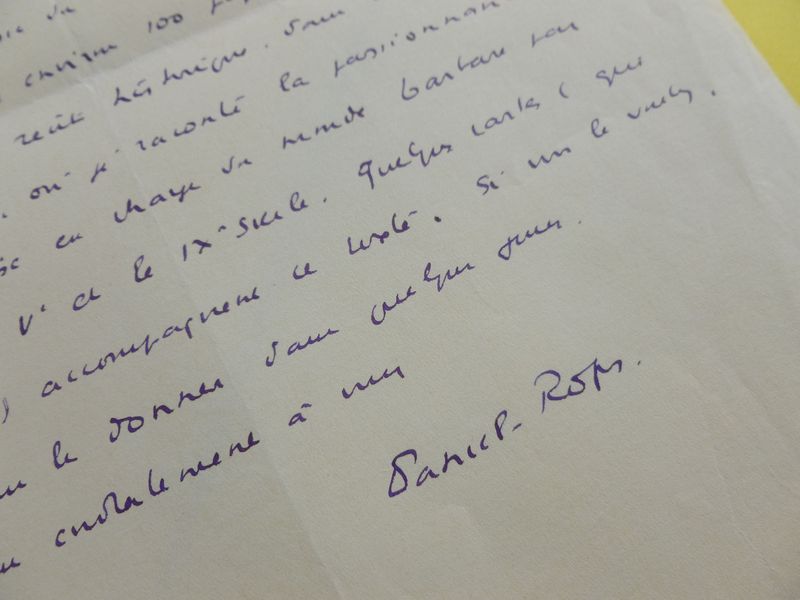 environ 100
récit historique. Dans
où j'ai raconté la passionnante
en charge du monde barbare par
Ve et le IXe siècle. Quelques cartes (que
) accompagnent ce texte. Si vous le voulez,
le donner dans quelques jours.
cordialement à vous
Daniel-Rops.